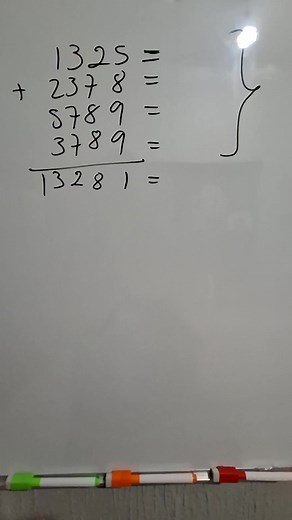 1325 =
+ 2378 =
5789 =
3789 =
13281 =